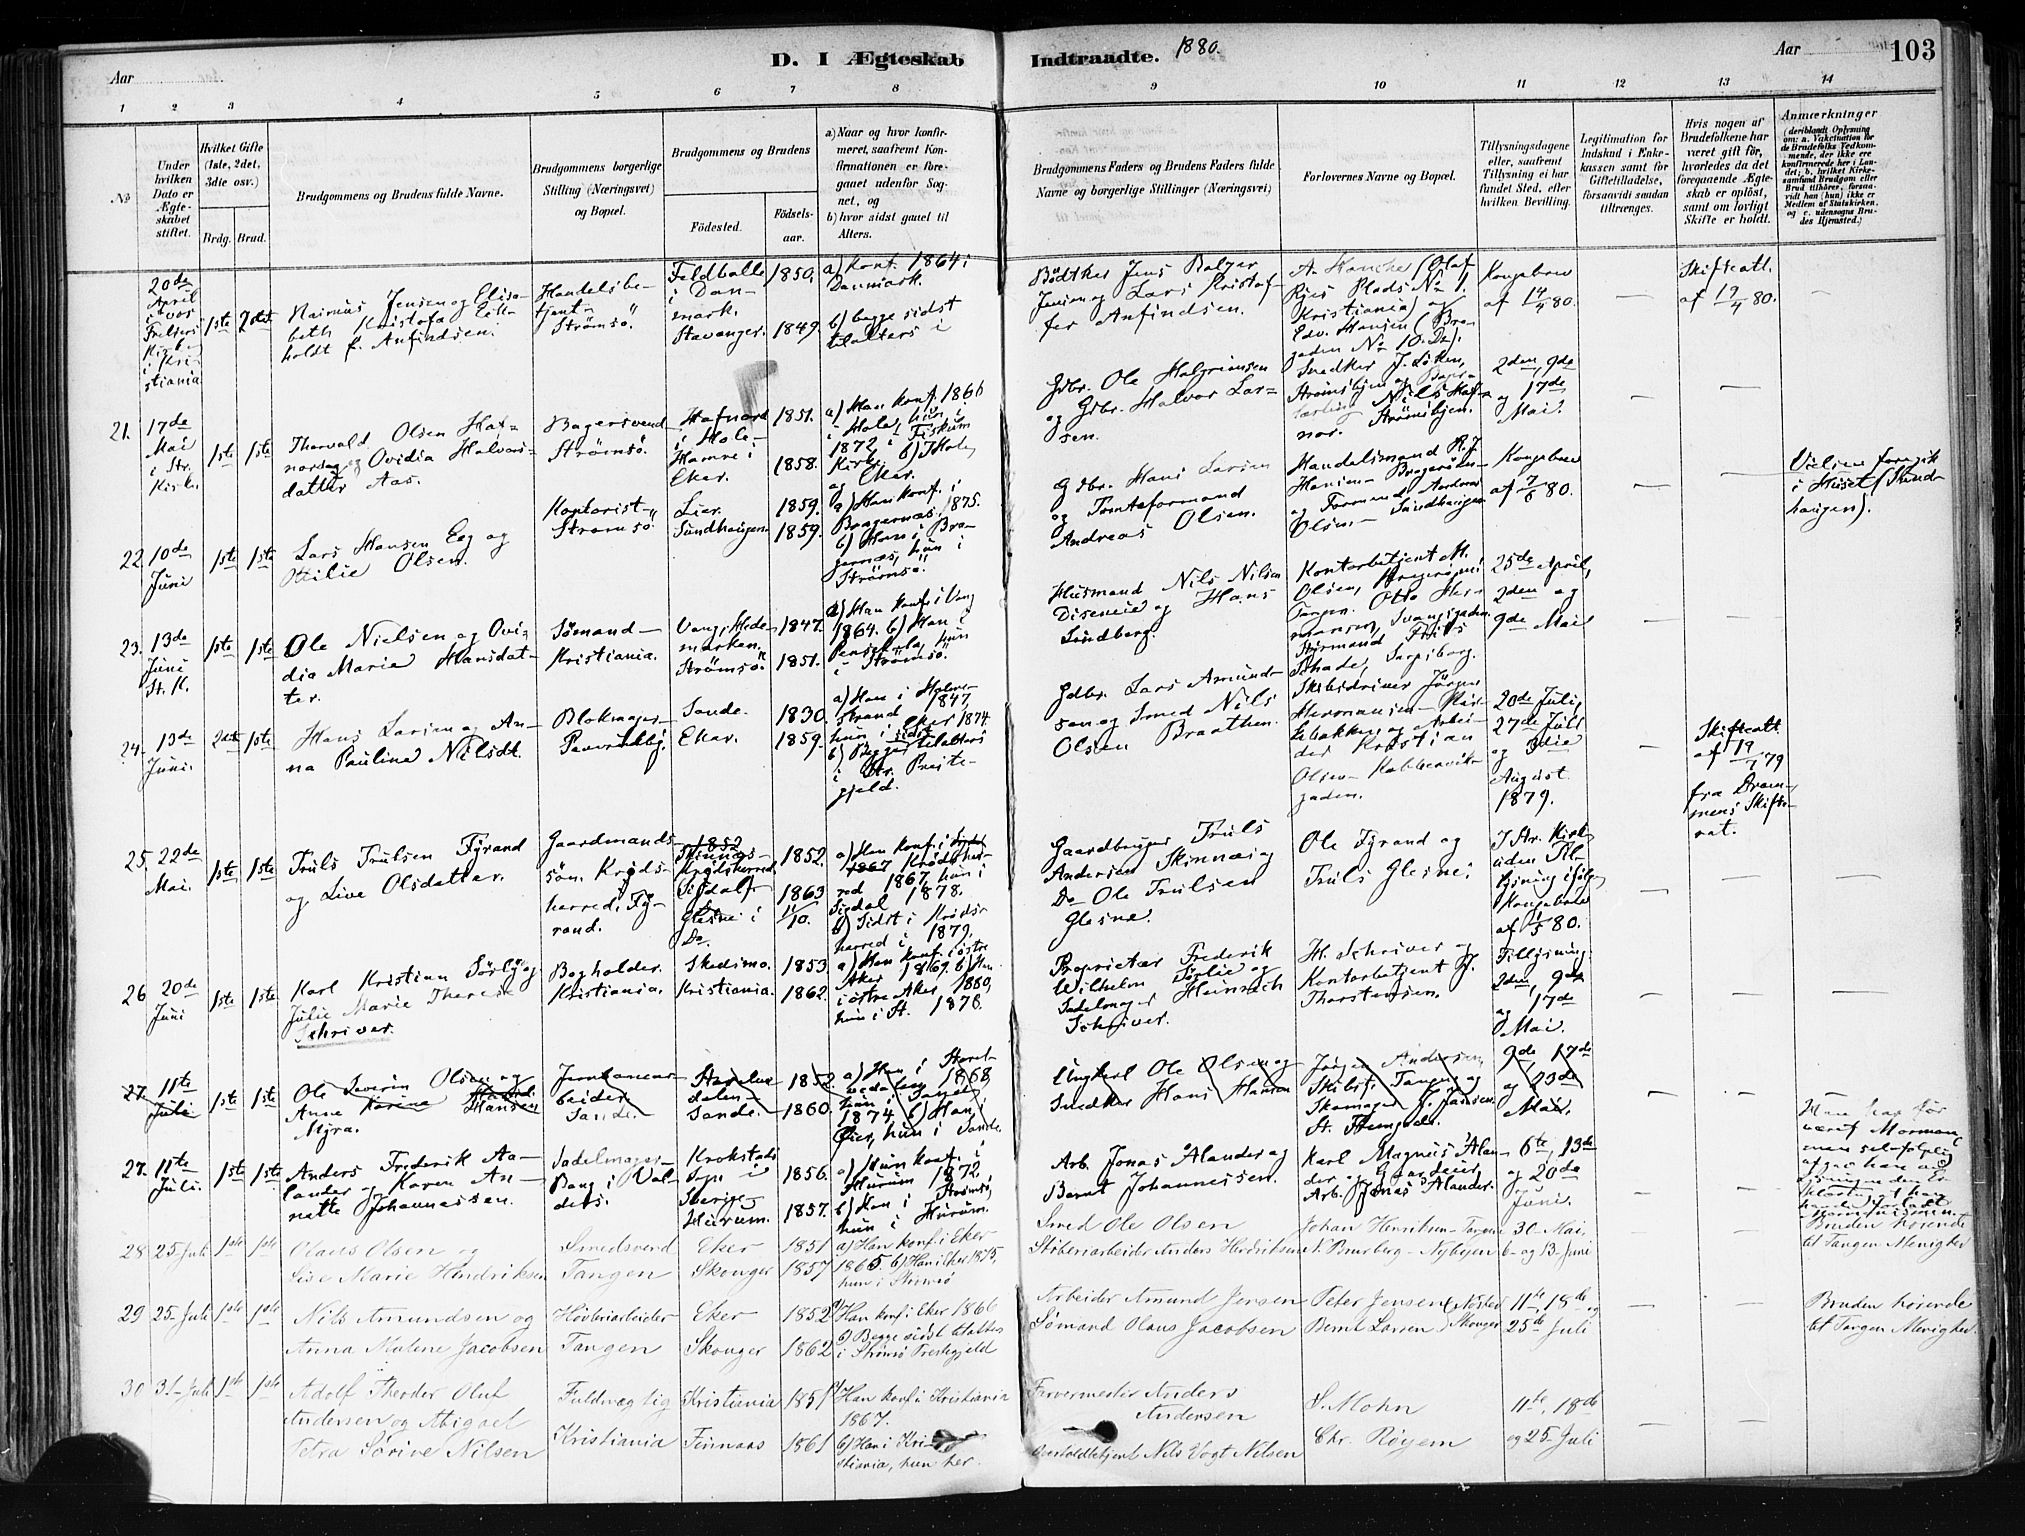 Aar
D. I Ægteskab
Indtraadte.
1880.
Aar
103
1 2 3 4 5 6 7 8 9 10 11 12 13 14
No
Under hvilken Dato er Ægteskabet stiftet.
Hvilket Gifte (1ste, 2det, 3die osv.)
Brdg. Brud.
Brudgommens og Brudens fulde Navne.
Brudgommens borgerlige Stilling (Næringsvei) og Bopæl.
Brudgommens og Brudens
Fødested.
Fødselsaar.
a) Naar og hvor konfirmeret, saafremt Konfirmationen er foregaaet udenfor Sognet, og
b) hvor sidst gaaet til Alters.
Brudgommens Faders og Brudens Faders fulde Navne og borgerlige Stillinger (Næringsvei)
Forlovernes Navne og Bopæl.
Tillysningsdagene eller, saafremt Tillysning ei har fundet Sted, efter hvilken Bevilling.
Legitimation for Indskud i Enkekassen samt for Giftetilladelse, forsaavidt saadan tiltrænges.
Hvis nogen af Brudefolkene har været gift før, hvorledes da det foregaaende Ægteskab er opløst, samt om lovligt Skifte er holdt.
Anmærkninger
(deriblandt Oplysning om: a. Vakcination for de Brudefolks Vedkommende, der ikke ere konfirmerede her i Landet; b. hvilket Kirkesamfund Brudgom eller Brud tilhører, forsaavidt han (hun) ikke er Medlem af Statskirken, og c. udensogns Brudes Hjemsted.)
20de April i vor Frelsers Kirke i Kristiania
1ste 2det
Rasmus Jensen og Elisabeth Kristofa Eilholdt f. Anfindsen.
Handelsbetjent – Strømsö.
Feldballe i Danmark. 1850.
Stavanger. 1849.
a) Konf. 1864 i Danmark.
b) begge sidst tilalters i
Bödtker Jens Balzer Jensen og Lars Kristoffer Anfindsen.
A. Hanche (Olaf Ryes Plads No 1. Kristiania) og Edv. Hansen (Bragaden No 10. Do).
Kongebrev af 14/4 80.
—
Skifteatt. af 19/4 80.
—
21. 17de Mai i Str. Kirke.
1ste 1ste
Thorvald Olsen Hafnorsdag og Ovidia Halvorsdatter Aas.
Bagersvend Strömsö.
Hafnord i Hole. 1851.
Hamre i Eker. 1858.
a) Han konf. 1866 i Hole, hun i 1872 i Fiskum Kirke. b) I Hole og Eker.
Gdbr. Ole Halgrimsen og Gdbr. Halvor Larsen.
Snedker J. Löken, Strømsbyen og Bagerlærling Nils Hafnor. Strömsbyen.
2den, 9de og 17de Mai.
—
—
22. 10de Juni
1ste 1ste
Lars Hansen Eeg og Ottilie Olsen.
Kontorist – Strømsö
Lier. 1859.
Sundhaugen. 1859.
a) Han konf. i Bragernæs, 1875. b) Han i Bragernæs, hun i Strömsö.
Gdbr. Hans Larsen og Tomteformand Andreas Olsen.
Handelsmand R. J. Hansen – Bragerøen – og Formand Andreas Olsen – Sundhaugen
Kongebrev af 7/6 80.
—
—
Vielsen foregik i Huset (Sundhaugen).
23. 13de Juni St. K.
1ste 1ste
Ole Nielsen og Ovidia Marie Hansdatter.
Sömand – Kristiania.
Vang, Hedemarken. 1847.
Strömsö. 1851.
a) Han konf. i Vang 1864. b) Han i Pensakola, hun i Strömsö.
Husmand Nils Nilsen Diseneie og Hans Lundberg.
Kontorbetjent M. Olsen, Tangen. Otto Hermansen, Svangsgaden Styrmand Frits Schade, Sarpsborg.
25de April, 2den og 9de Mai
—
—
24. 13de Juni.
2det 1ste
Hans Larsen og Anna Pauline Nilsdt.
Blokmager –
Sande. 1830.
Eker. 1859.
a) Han i Holmestrand 1847, hun i Eker 1874. b) Begge sidst tilalters i Str. Prestegjeld.
Gdbr. Lars Amundsen og Smed Nils Olsen Braathen.
Skibsdriver Jörgen Hermansen – og Arbeider Kristian Olsen – Kobbervikgaden.
20de Juli, 27de Juli og 3die August 1879.
—
Skifteatt. af 19/7 79 fra Drammens Skifteret.
25. 22de Mai.
1ste 1ste
Truls Trulsen Fyrand og Live Olsdatter.
Gaardmandssön. Krødsherred, Fyrand.
1852 Skinnæs – Krødsherred, Sigdal 1852.
Glesne i Do. 1863 11/10.
a) Han konf. i Sigdal 1867 Krødsherred 1867, hun i Sigdal 1878. b) Sidst i Krødsherred i 1879.
Gaardbruger Truls Andersen Skinnæs og Do Ole Trulsen Glesne.
Ole Fyrand og Truls Glesne.
I Str. Kirke uden Tillysning ifølge Kongebrev af 1/5 80.
—
—
—
26 20de Juni
1ste 1ste
Karl Kristian Sørlie og Julie Marie Therese Schriver.
Bogholder. Kristiania.
Skedsmo. 1853.
Kristiania. 1862.
a) Han konf. i östre Aker 1869. b) Han i östre Aker 1880, hun i St. 1878.
Proprietær Frederik Wilhelm Sørlie og Sadelmager Heinrich Schriver.
H. Schriver og Kontorbetjent J. Thorstensen.
Tillysning. 2den, 9de og 17de Mai.
—
—
—
27. 11te Juli
1ste 1ste
Ole Severin Olsen og Anne Karine Hansen Myra.
Jernbanearbeider Sande.
1852.
Sande. 1860.
a) Han i 1868, hun i Sande 1874 b) Han i Eker, hun i Sande.
Ungkarl Ole Olsen og Snedker Hans Hansen
Jørgen Andersen, Skibsf. Tangen og Skomager J. Jansen.
9de, 17de og 23de Mai.
—
—
—
27. 11te Juli.
1ste 1ste
Anders Frederik Aalander og Karen Annette Johannessen.
Sadelmager – Bang i Valders.
Krokstads Sogn i Sverige – 1856.
Hurum. 1857.
a) Hun konf. i Hurum 1872. b) Han i Strömsö, hun i Hurum.
Arb. Jonas Alander og Bernt Johannessen.
Karl Magnus Alander, og Arb. Jonas Alander.
6te, 13de og 20de Juni.
—
—
Han har før været Mormon,
28 25 Juli 1ste 1ste
Olaus Olsen og Lise Marie Hendriksen
Smedsvend Tangen
Eker 1851
Skouger 1857
a) Han konf. i Eker 1865. b) Han i Eker 1875, hun i Strømsø
Smed Ole Olsen
Støberiarbeider Anders Hendriksen
Johan Henriksen – Tangen
N. Bruserg – Nybyen
30 Mai, 6– og 13– Juni
—
—
Bruden hørende til Tangen Menighed
29 25– Juli 1ste 1ste
Nils Amundsen og Anna Malene Jacobsen
Høvleriarbeider Tangen
Eker 1852
Skouger 1862
a) Han konf. i Eker 1866 b) Begge sidst tilalters i Strømsø Prestegjeld
Arbeider Amund Jensen
Sømand Olaus Jacobsen
Peter Jensen (Nøsted
Bernt Larsen) Skouger
11te, 18de og 25de Juli
—
—
Bruden hørende til Tangen Menighed.
30 31– Juli 1ste 1ste
Adolf Theodor Oluf Andersen og Abigael Petra Sørine Nilsen
Fuldmægtig Kristiania
Kristiania 1851
Finnaas 1861
a) Han konf. i Kristiania 1867. b) Han i Kristiania, hun her.
Farvermester Anders Andersen
Overtoldbetjent Nils Vogt Nilsen
S. Mohn
Chr. Røyem
11te, 18de og 25– Juli
—
—
—